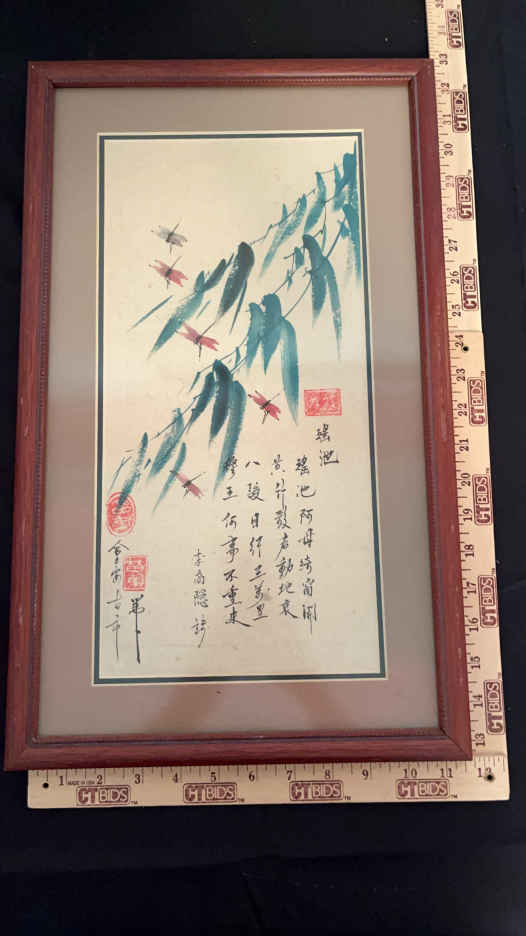 瑤池
瑤池阿母綺窗開
黃竹歌聲動地哀
八駿日行三萬里
穆王何事不重來
李商隱詩
35
34
33
32
31
30
29
28
27
26
25
24
23
22
21
20
19
18
17
16
15
14
13
1 MADE IN USA 2 3 4 5 6 7 8 9 10 11 12
CTBIDS
CTBIDS
CTBIDS
CTBIDS
CTBIDS
CTBIDS
CTBIDS
CTBIDS
CTBIDS
CTBIDS
CTBIDS™ CTBIDS™ CTBIDS™ CTBIDS™